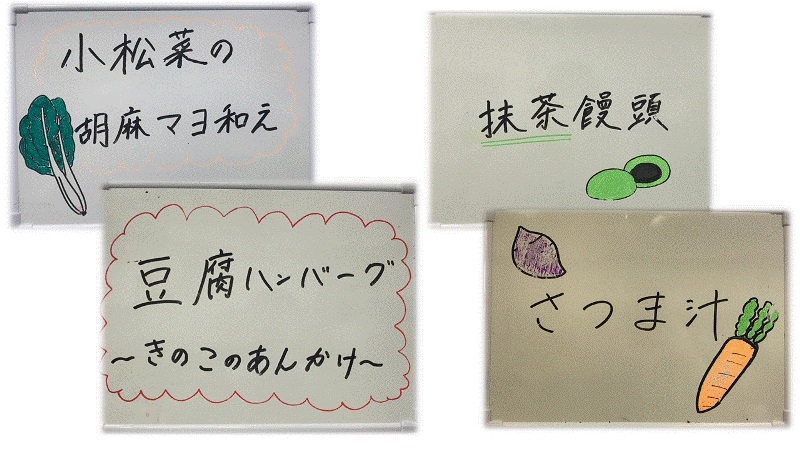 小松菜の
胡麻マヨ和え
抹茶饅頭
豆腐ハンバーグ
～きのこのあんかけ～
さつま汁